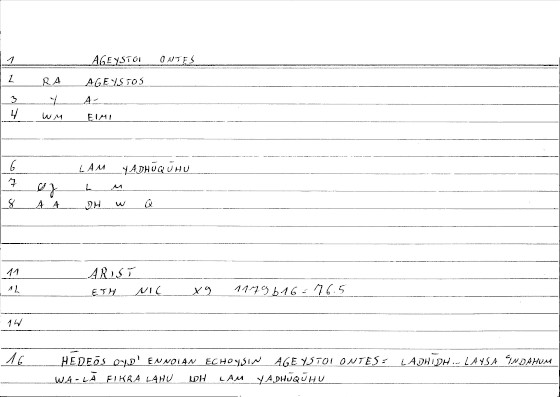 1 AGEYSTOI ONTES
2 RA AGEYSTOS
3 Y A-
4 WM EIMI
6 LAM YADHŪQŪHU
7 L M
8 A A DH W Q
11 ARIST
12 ETH NIC X9 1179b16 = 76.5
14
16 HĒDEŌS OYD' ENNOIAN ECHOYSIN AGEYSTOI ONTES = LADHĪDH... LAYSA ʿINDAHUM
WA-LĀ FIKRA LAHU IDH LAM YADHŪQŪHU